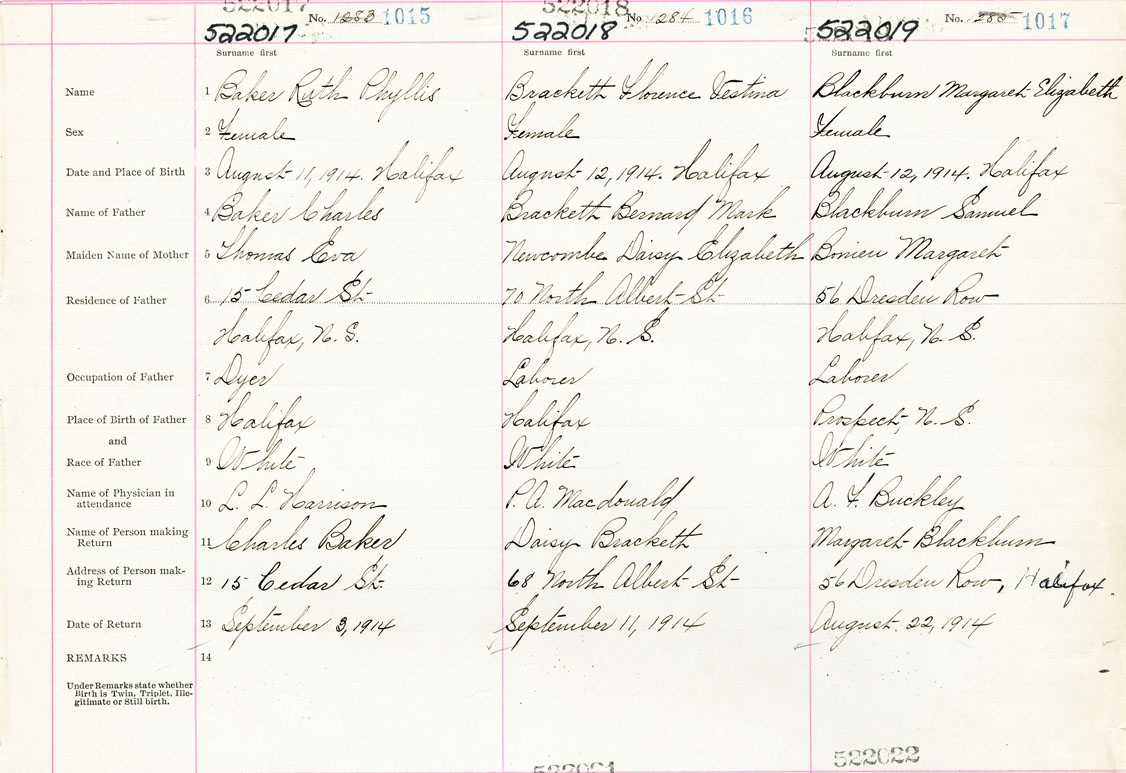 522017 522018
No. 1283 1015 No 1284 1016 No. 1285 1017
522017 522018 522019
Surname first Surname first Surname first
Name 1 Baker Ruth Phyllis Brackett Florence Vestina Blackburn Margaret Elizabeth
Sex 2 Female Female Female
Date and Place of Birth 3 August 11, 1914. Halifax August 12, 1914. Halifax August 12, 1914. Halifax
Name of Father 4 Baker Charles Brackett Bernard Mark Blackburn Samuel
Maiden Name of Mother 5 Thomas Eva Newcombe Daisy Elizabeth Margaret
Residence of Father 6 15 Cedar St 70 North Albert St 56 Dresden Row
Halifax, N. S. Halifax, N. S. Halifax, N. S.
Occupation of Father 7 Dyer Laborer Laborer
Place of Birth of Father 8 Halifax Halifax Prospect, N. S.
and
Race of Father 9 White White White
Name of Physician in
attendance 10 L. L. Harrison P. A. Macdonald A. F. Buckley
Name of Person making
Return 11 Charles Baker Daisy Brackett Margaret Blackburn
Address of Person mak-
ing Return 12 15 Cedar St 68 North Albert St 56 Dresden Row, Halifax.
Date of Return 13 September 3, 1914 September 11, 1914 August 22, 1914
REMARKS 14
Under Remarks state whether
Birth is Twin, Triplet, Ille-
gitimate or Still birth.
522021 522022